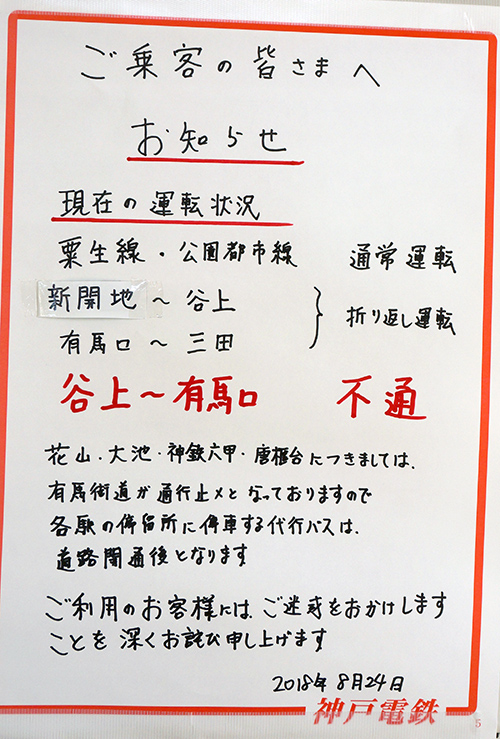 ご乗客の皆さまへ
お知らせ
現在の運転状況
粟生線・公園都市線 通常運転
新開地～谷上
有馬口～三田 } 折り返し運転
谷上～有馬口 不通
花山・大池・神鉄六甲・唐櫃台につきましては、
有馬街道が通行止メとなっておりますので
各駅の停留所に停車する代行バスは、
道路開通後となります
ご利用のお客様には、ご迷惑をおかけします
ことを深くお詫び申し上げます
2018年8月24日
神戸電鉄
5